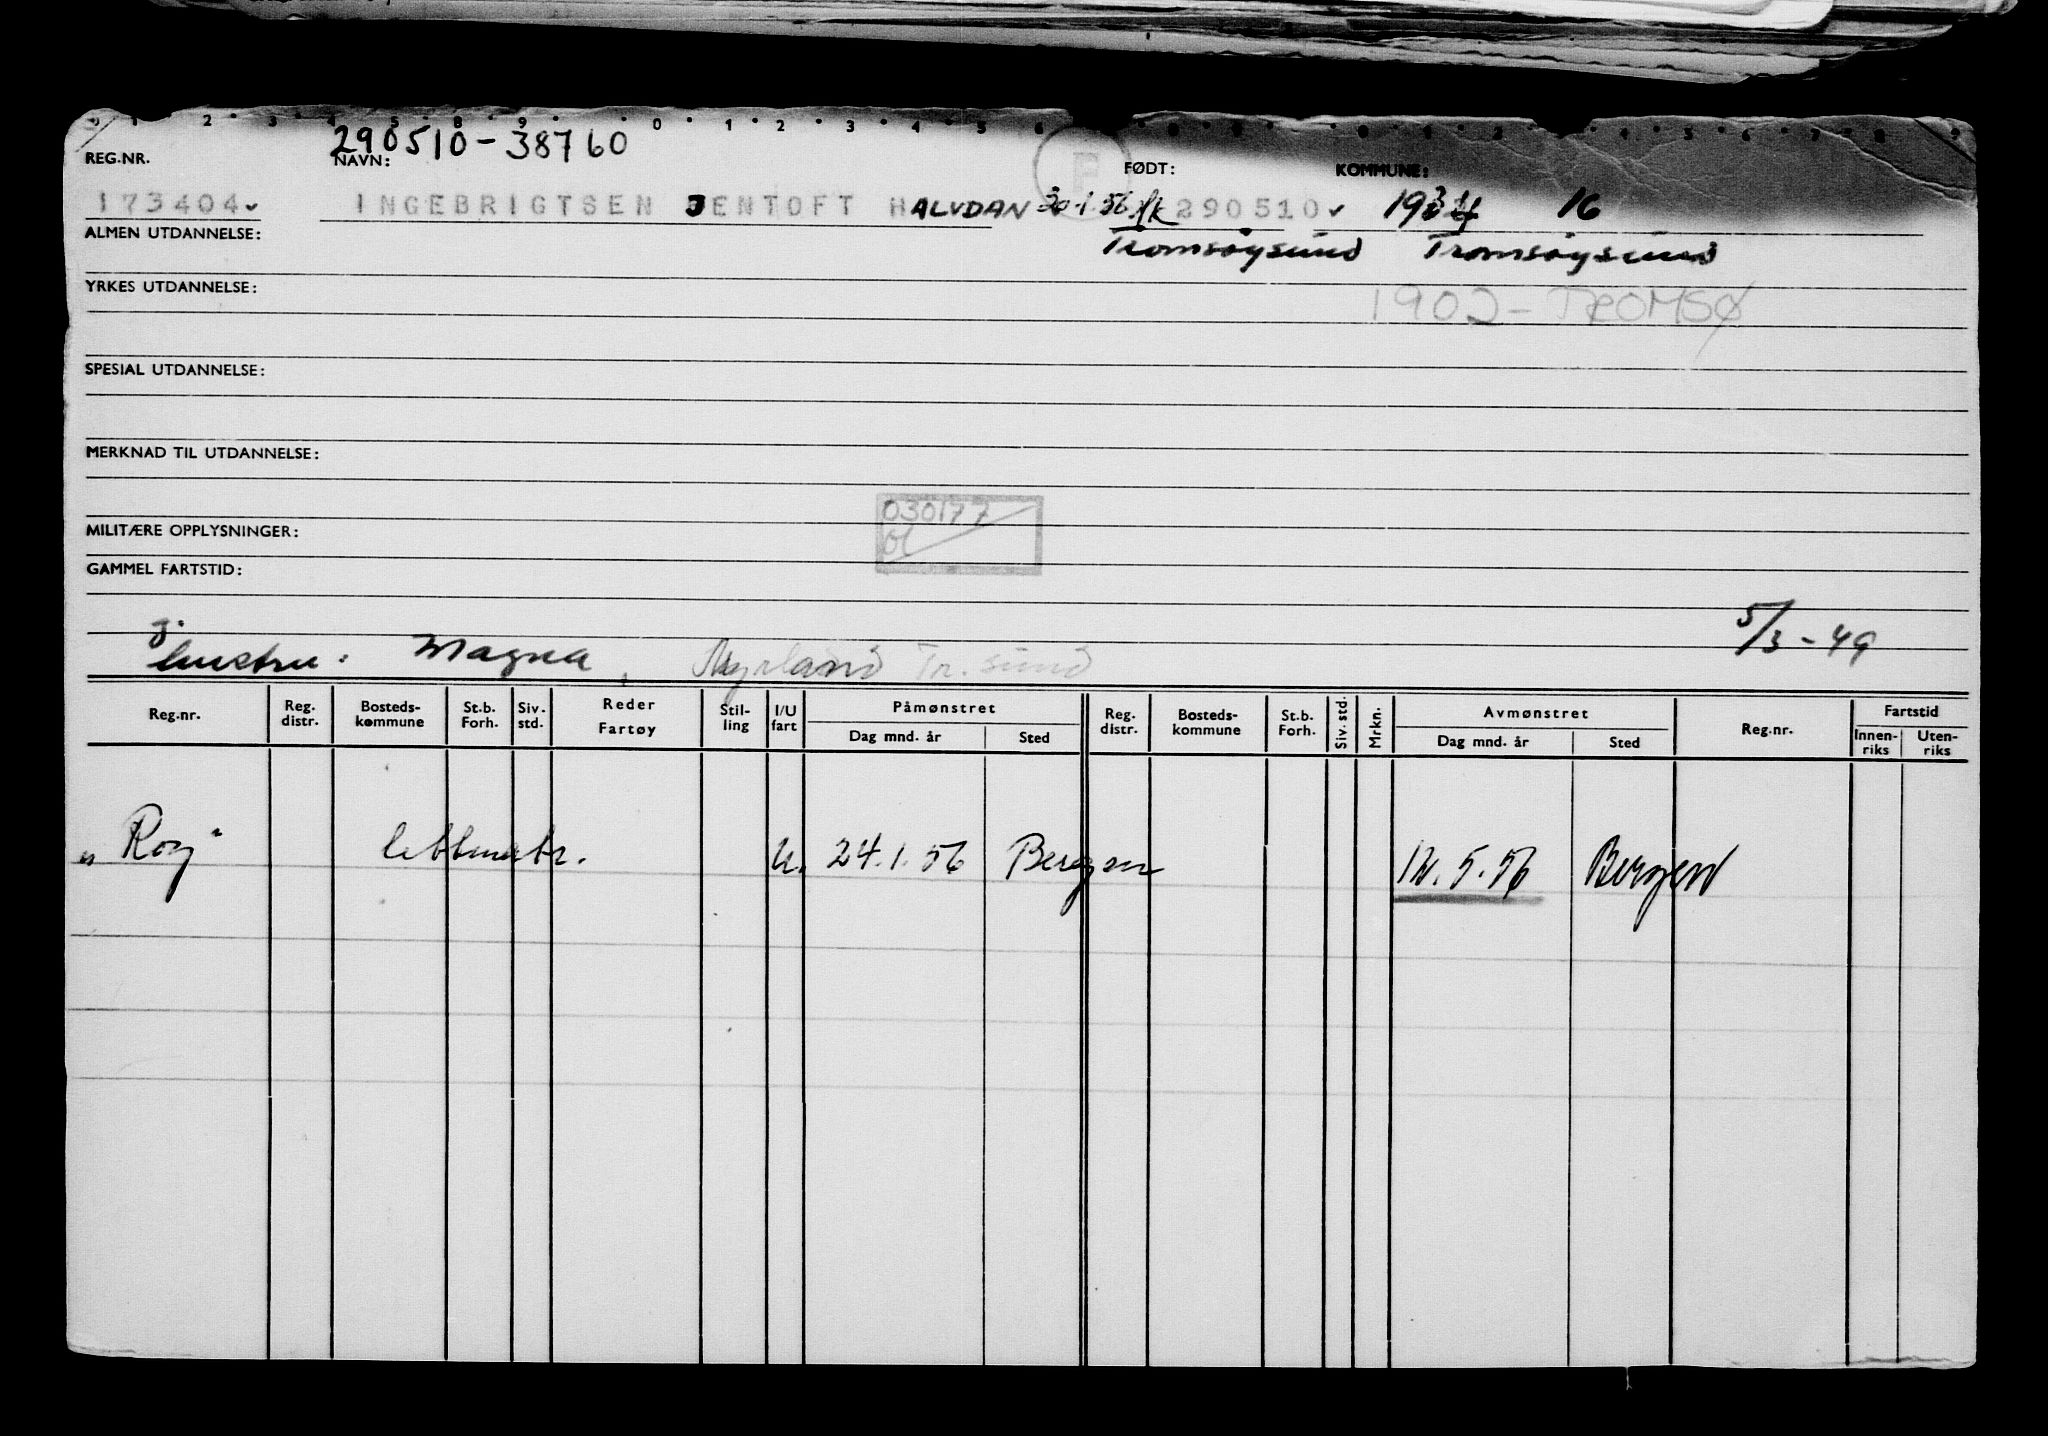 290510-38760
REG.NR. NAVN: FØDT: KOMMUNE:
173404 INGEBRIGTSEN JENTOFT HALVDAN 30-1.56 290510 16
ALMEN UTDANNELSE: Tromsøysund Tromsøysund
YRKES UTDANNELSE: 1902-TROMSØ
SPESIAL UTDANNELSE:
MERKNAD TIL UTDANNELSE:
030177
MILITÆRE OPPLYSNINGER:
GAMMEL FARTSTID:
5/3-49
hustru: Magna, Myrland Tr.sund
Reg.nr. Reg. distr. Bosteds-kommune St.b. Forh. Siv. std. Reder Fartøy Stil-ling I/U fart Påmønstret Dag mnd. år Sted Reg. distr. Bosteds-kommune St.b. Forh. Siv. std. Mrkn. Avmønstret Dag mnd. år Sted Reg.nr. Fartstid Innen-riks Uten-riks
"Roy" lettmatr. U. 24.1.56 Bergen 12.5.56 Bergen